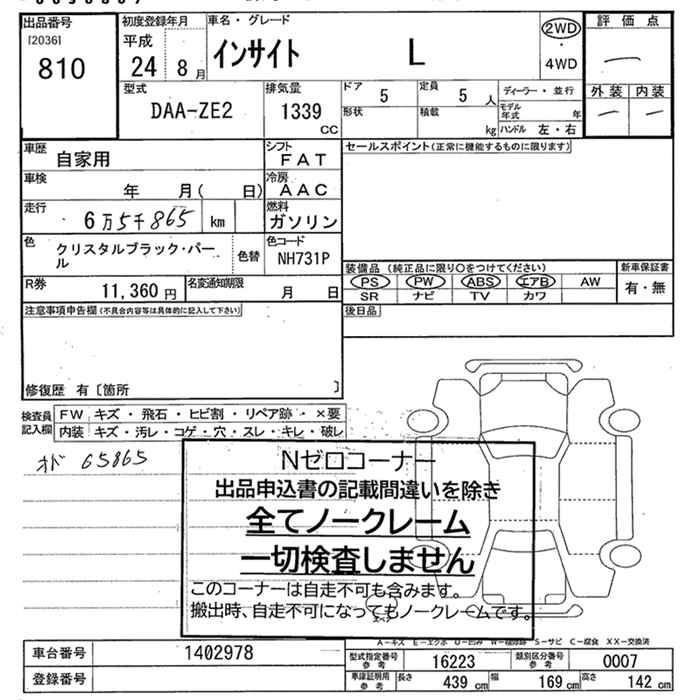 出品番号
[2036]
810
初度登録年月
平成
24 8 月
車名・グレード
インサイト L
2WD
・
4WD
評価点
一
外装 内装
一 一
型式
DAA-ZE2
排気量
1339
CC
ドア
5
定員
5 人
形状
積載
kg
ディーラー・並行
モデル年式 年
ハンドル 左・右
車歴
自家用
シフト
FAT
セールスポイント(正常に機能するものに限ります)
車検
年 月( 日)
冷房
AAC
走行
6万5千865 km
燃料
ガソリン
色
クリスタルブラック・パール
色替
色コード
NH731P
装備品 (純正品に限り○をつけてください)
PS PW ABS エアB AW
SR ナビ TV カワ
新車保証書
有・無
R券
11,360 円
名変通知期限
月 日
注意事項申告欄(不具合内容等は具体的に記入して下さい)
後日品
修復歴 有〔箇所 〕
検査員記入欄
FW キズ・飛石・ヒビ割・リペア跡・×要
内装 キズ・汚レ・コゲ・穴・スレ・キレ・破レ
オド 65865
Nゼロコーナー
出品申込書の記載間違いを除き
全てノークレーム
一切検査しません
このコーナーは自走不可も含みます。
搬出時、自走不可になってもノークレームです。
A-キズ E-エクボ U-凹み W-補修跡 S-サビ C-腐食 XX-交換済
車台番号
1402978
登録番号
型式指定番号
参考
16223
類別区分番号
参考
0007
車庫証明用
参考
長さ 439 cm 幅 169 cm 高さ 142 cm